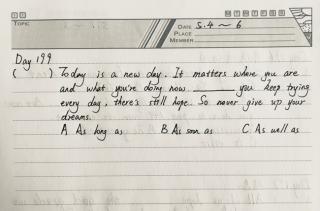 M T W T F S S
TOPIC
DATE 5.4 ~ 6
PLACE
MEMBER
Day 199
( ) Today is a new day. It matters where you are
and what you're doing now ________ you keep trying
every day, there's still hope. So never give up your
dreams.
A As long as B As soon as C. As well as